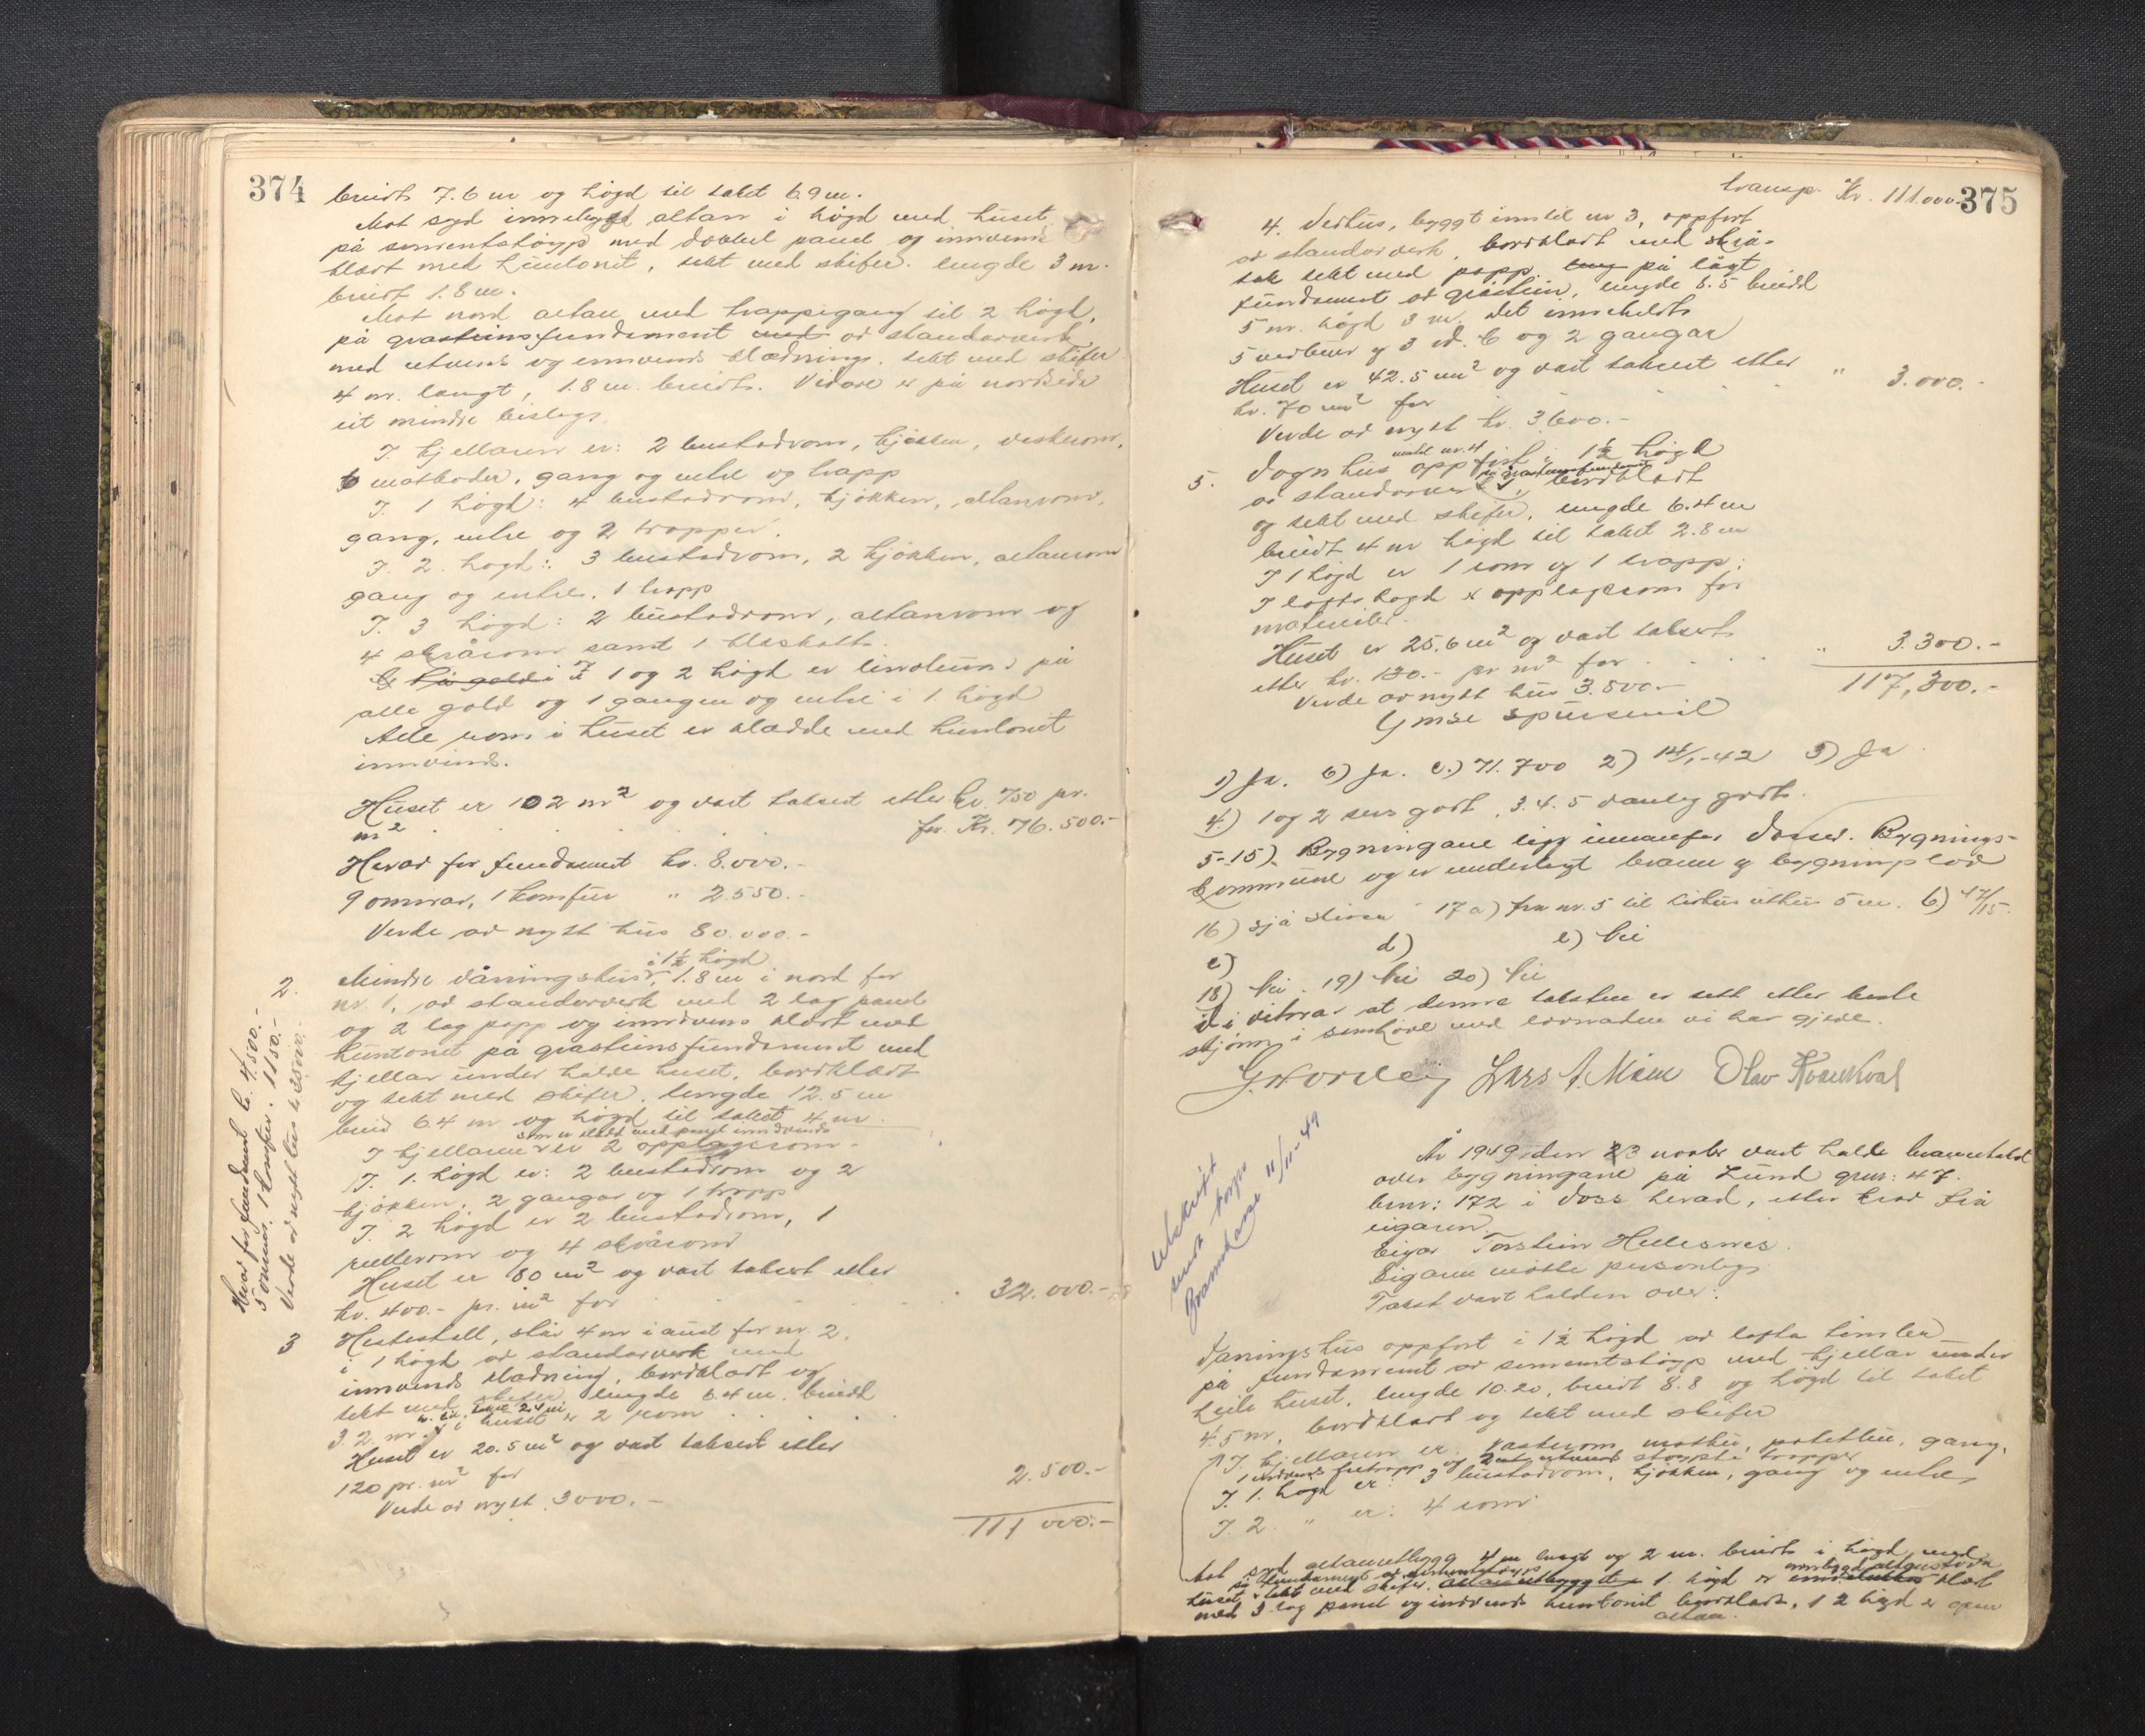 374
breidt 7.6 m og høgd til taket 6.9 m.
Mot syd innebygd altan i høgd med huset
på sementstøyp med dobbel panel og innvendi
klædt med huntonit, tekt med skifer. lengde 3 m.
breidt 1.8 m.
Mot nord altan med trappegang til 2 høgd,
på grasteinsfundament av standarverk
med utvend og innvend klædning. tekt med skifer
4 m. langt, 1.8 m. breidt. Vidare er på nordsida
eit mindre bislag.
I kjellaren er: 2 bustadrom, kjøkken, vaskerom,
matboder, gang og entre og trapp
I. 1 høgd: 4 bustadrom, kjøkken, altanrom,
gang, entre og 2 trapper.
I. 2. høgd: 3 bustadrom, 2 kjøkken, altanrom
gang og entre. 1 trapp
I. 3 høgd: 2 bustadrom, altanrom og
4 skrårom samt 1 kleskott.
I 1 og 2 høgd er linoleum på
alle gold og 1 gangen og entre i 1. høgd
Alle rom i huset er klædde med huntonit
innvend.
Huset er 102 m² og vart taksert etter kr. 750 pr.
m² for Kr. 76.500.-
Herav for fundament kr. 8.000.-
9 omnar, 1 komfur " 2550.-
Verde av nytt hus 80.000.-
2. Mindre våningshus i 1½ høgd, 1.8 m i nord for
nr. 1, av standarverk med 2 lag panel
og 2 lag papp og innvend klædt med
huntonit på grasteinsfundament med
kjellar under halve huset, bordklædt
og tekt med skifer. lengde 12.5 m
breid 6.4 m og høgd til taket 4 m.
som er klædd med panel innvendes
I kjellaren er 2 opplagsrom.
I. 1. høgd er: 2 bustadrom og 2
kjøkken, 2 gangar og 1 trapp
I. 2 høgd er 2 bustadrom, 1
rullerom og 4 skrårom
Huset er 80 m² og vart taksert etter
kr. 400.- pr. m² for 32.000.-
Herav for fundament kr. 4.500.-
5 omnar, 1 komfur. 1150.-
Verde av nytt hus kr 35000.-
3 Hestestall, står 4 m i aust for nr. 2.
i 1 høgd av standarverk med
innvend klædning, bordklædt og
tekt med skifer, lengde 6.4 m. breidd
3.2 m. h. til taket 2.4 m i huset er 2 rom
Huset er 20.5 m² og vart taksert etter
120 pr. m² for 2.500.-
Verde av nytt 3000.-
111 000.-
375
transp. Kr. 111.000.-
4. Vedhus, byggt inntil nr 3, oppført
av standarverk, bordklædt med skrå-
tak tekt med papp, på lågt
fundament av gråstein, lengde 8.5 breidd
5 m. høgd 3 m. Det inneheldt
5 vedbuer og 3 W.C og 2 gangar
Huset er 42.5 m² og vart taksert etter
kr. 70 m² for " 3.000.-
Verde av nytt kr. 3.600.-
5. Vognhus inntil nr. 4 oppført i 1½ høgd
av standarverk på grasteinsfundament, bordklædt
og tekt med skifer, lengde 6.4 m
breidt 4 m høgd til taket 2.8 m
I 1 høgd er 1 rom og 1 trapp.
I loftshøgd er opplagsrom for
materialer.
Huset er 25.6 m² og vart taksert
etter kr. 130.- pr m² for " 3.300.-
Verde av nytt hus 3.800.-
117,300.-
Ymse spursmål
1) Ja. b) Ja. c.) 71.700 2) 14/1-42 3) Ja
4.) 1 og 2 sers godt, 3.4.5 vanleg godt.
5-15) Bygningane ligg innanfor Vosse. Bygnings-
kommune og er underlagt brann og bygningslov
16) sjå skissa 17 a) fra nr. 5 til uthus 5 m. b) 47/15.
c) d) e) Nei
18) Nei. 19) Nei 20) Nei
Vi vitnar at denne taksten er sett etter beste
skjønn i samhøve med lovnaden vi har gjeve.
G. Nordheij Lars A. Møen Olav Kvamhval
Utskrift
sendt
Brannkassa 11/11-49
År 1949 den 23 novbr vart halde branntakst
over bygningane på Lund gnr: 47.
bnr: 172 i Voss herad, etter krav frå
eigaren.
Eigar Torstein Hellesnes.
Eigaren møtte personleg.
Takst vart halden over:
Våningshus oppført i 1½ høgd av lafta timber
på fundament av sementstøyp med kjellar under
heile huset, lengde 10.20, breidt 8.8 og høgd til taket
4.5 m, bordklædt og tekt med skifer
I. kjellaren er: Vaskerom, matbu, potetbu, gang,
1 innvend tretrapp og 2 utvend støypte trapper
I. 1. høgd er: 3 bustadrom, kjøkken, gang og entre,
I. 2. " er: 4 rom
Mot syd altanutbygg 4 m langt og 2 m. breidt i høgd med
huset, på fundament av sementstøyp
tekt med skifer. 1. høgd er innbygd altanstova klædt
med 3 lag panel og innvend huntonit bordklædt, i 2 høgd er open
altan.